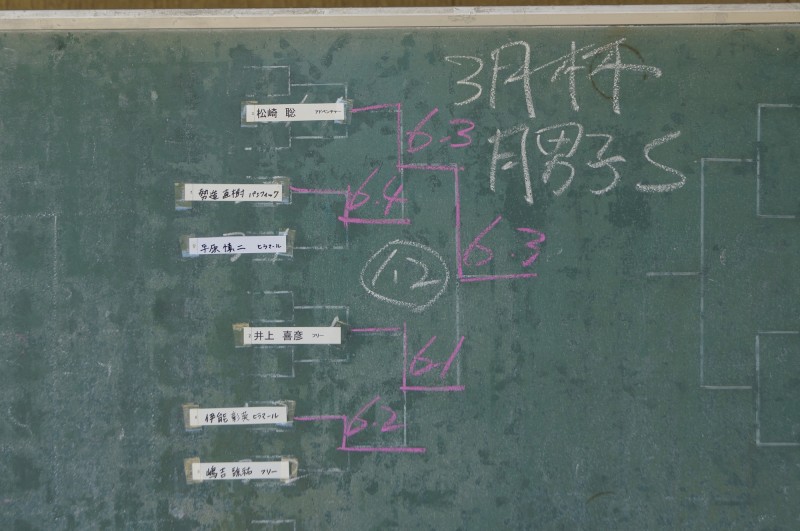 3月杯
月男子S
松崎 聡 アドベンチャー
6.3
直樹 パシフィック
6.4
慎二 ヒラマール
6.3
12
井上 喜彦 フリー
6.1
伊能 ヒラマール
6.2
嶋吉 フリー